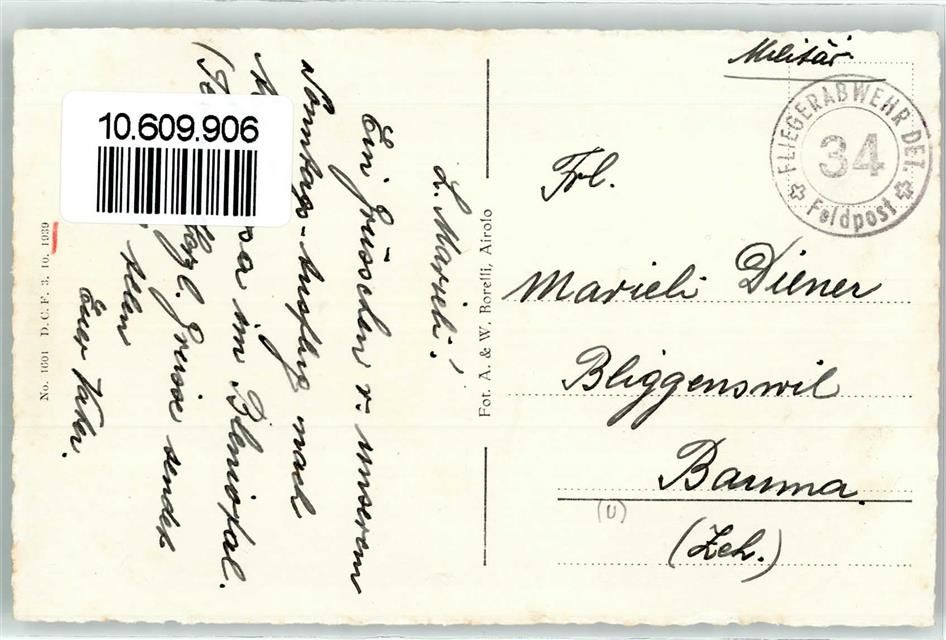 Militär
FLIEGERABWEHR DET.
34
Feldpost
Frl.
Marieli Diener
Bliggenswil
Bauma
(Zch.)
(U)
Fot. A. & W. Borelli, Airolo
No. 1601 D. C. F. 3. 10. 1939
10.609.906
L. Marieli!
Ein Grüsschen v. unserem
Sonntags-Ausflug nach
im Bleniotal.
Herzl. Grüsse sendet
allen
Euer Vater.